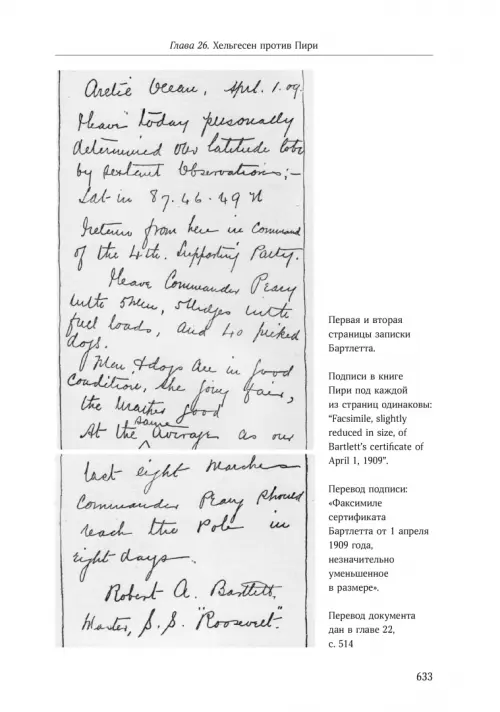 Глава 26. Хельгесен против Пири
Arctic Ocean, Aprl. 1. 09.
I have today personally
determined our latitude
by sextant observations; —
Lat-in 87.46.49 N
I return from here in Command
of the 4th. Supporting Party.
I leave Commander Peary
with 5 men, 5 sledges with
full loads, and 40 picked
dogs.
Men & dogs are in good
condition, the going fair,
the weather good
At the same average as our
last eight marches
Commander Peary should
reach the Pole in
eight days.
Robert A. Bartlett,
Master, S.S. "Roosevelt."
Первая и вторая
страницы записки
Бартлетта.
Подписи в книге
Пири под каждой
из страниц одинаковы:
“Facsimile, slightly
reduced in size, of
Bartlett’s certificate of
April 1, 1909”.
Перевод подписи:
«Факсимиле
сертификата
Бартлетта от 1 апреля
1909 года,
незначительно
уменьшенное
в размере».
Перевод документа
дан в главе 22,
с. 514
633